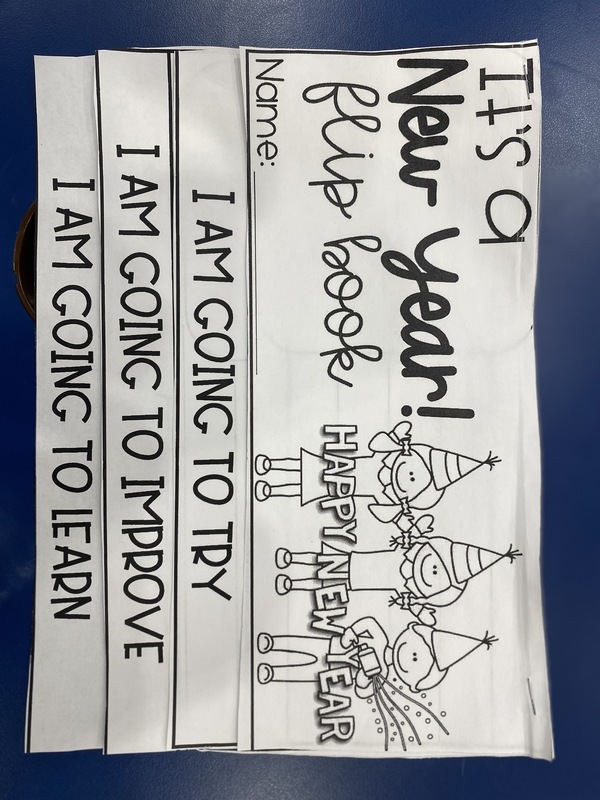 It's a
New Year!
flip book
Name:
HAPPY NEW YEAR
I AM GOING TO TRY
I AM GOING TO IMPROVE
I AM GOING TO LEARN